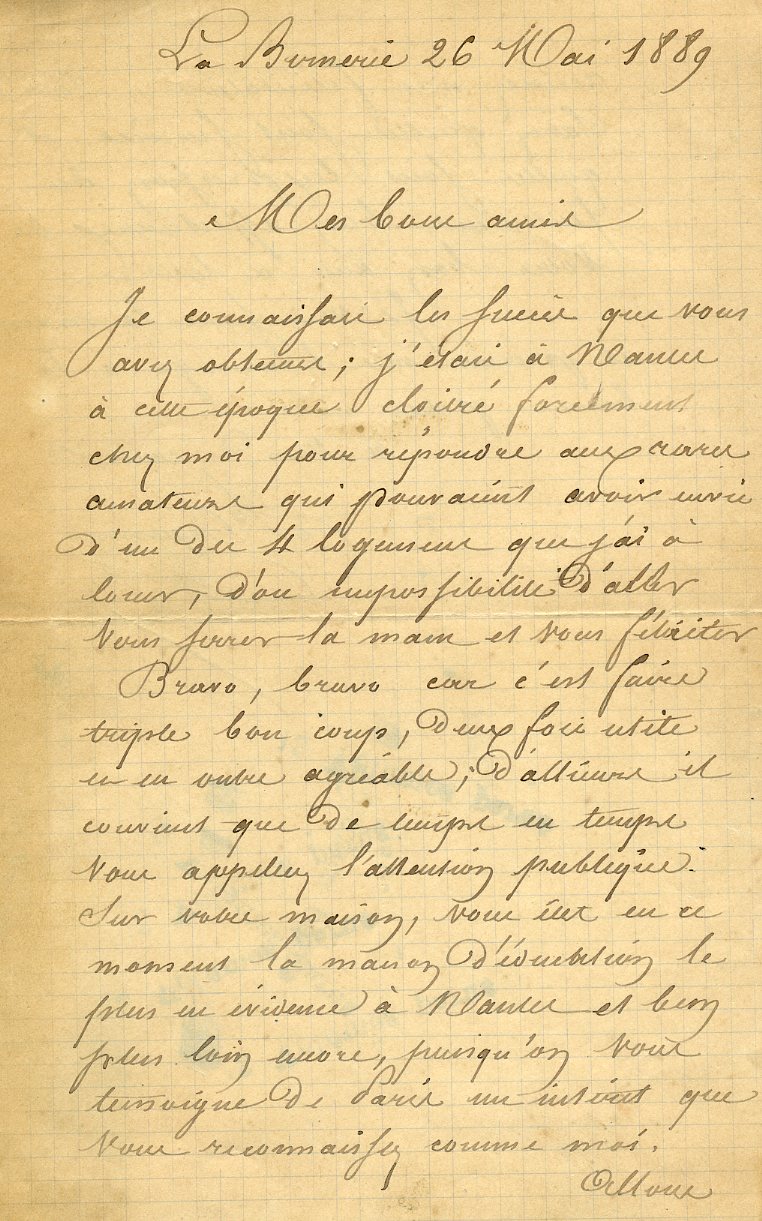 La Bernerie 26 Mai 1889
Mes bons amis
Je connaissais les succès que vous
avez obtenus ; j'étais à Nantes
à cette époque cloitré forcément
chez moi pour répondre aux rares
amateurs qui pouvaient avoir envie
d'un des 4 logements que j'ai à
louer, d'où impossibilité d'aller
vous serrer la main et vous féliciter
Bravo, bravo car c'est faire
triple bon coup, deux fois utile
et en outre agréable ; d'ailleurs il
convient que de temps en temps
vous appeliez l'attention publique
sur votre maison, vous êtes en ce
moment la maison d'éducation le
plus en évidence à Nantes et bien
plus loin encore, puisqu'on vous
temoigne de Paris un intérêt que
vous reconnaissez comme moi.
Allons